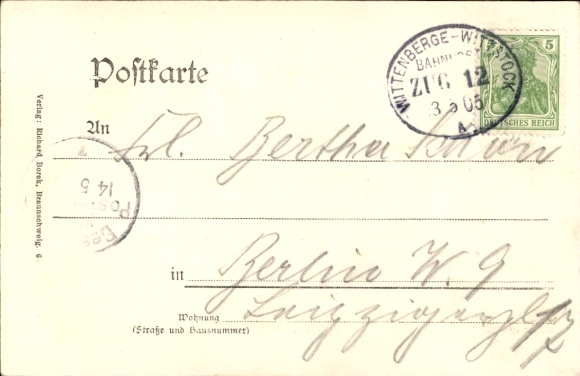 Postkarte
WITTENBERGE-WITTSTOCK
BAHNPOST
ZUG 12
3 5 05
A
5
DEUTSCHES REICH
An Frl. Bertha
14 5
in Berlin W. 9
Wohnung
(Straße und Hausnummer)
Verlag: Richard Borek, Braunschweig. 6